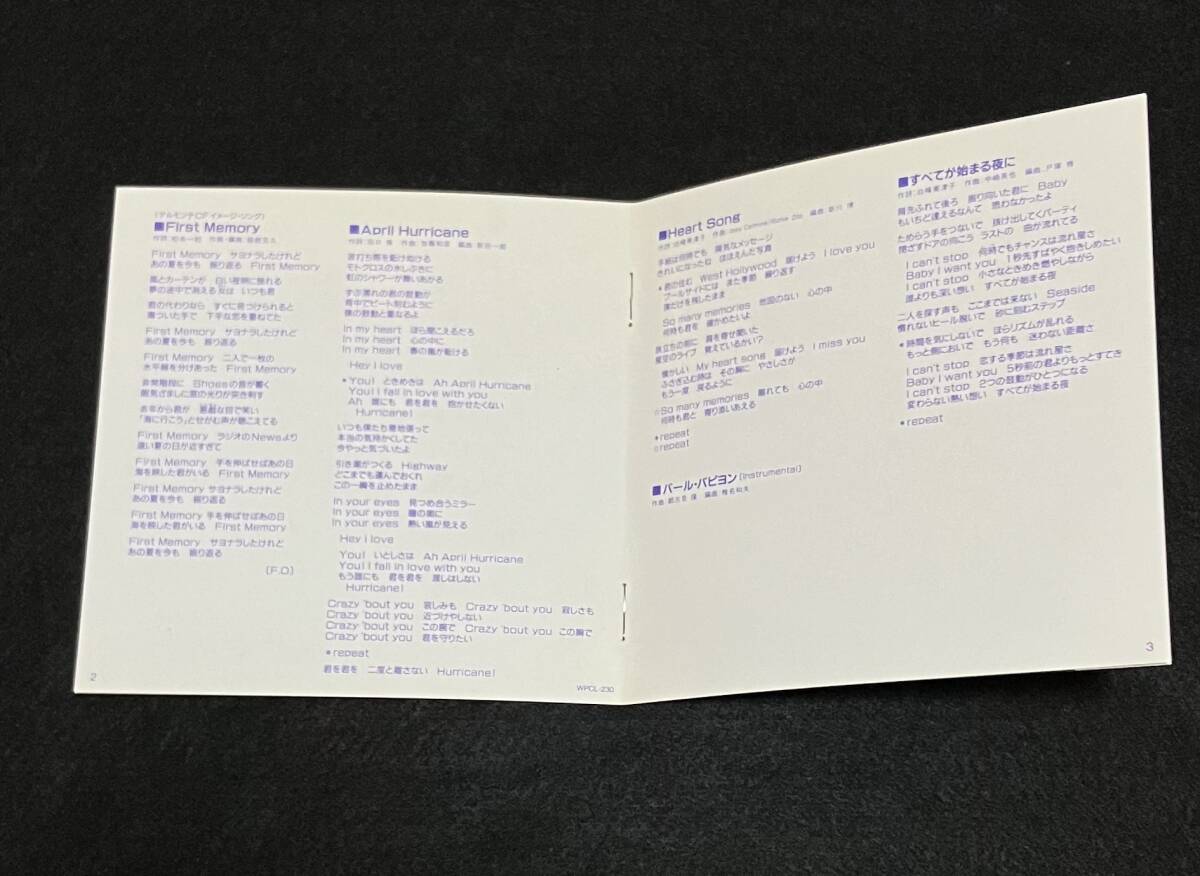 (デルモンテCFイメージ・ソング)
■First Memory
First Memory サヨナラしたけれど
あの夏を今も 振り返る First Memory
風とカーテンが 白い夜明に揺れる
夢の途中で消える女は いつも君
君の代わりなら すぐに見つけられると
傷ついた手で 下手な恋を重ねてた
First Memory サヨナラしたけれど
あの夏を今も 振り返る
First Memory 二人で一枚の
水平線を分けあった First Memory
非常階段に Shoesの音が響く
眠気ざましに窓の光りが突き刺す
去年から君が 悪戯な目で笑い
「海に行こう」とせがむ声が聴こえてる
First Memory ラジオのNewsより
遠い夏の日が近すぎて
First Memory 手を伸ばせばあの日
海を映した君がいる First Memory
First Memory サヨナラしたけれど
あの夏を今も 振り返る
First Memory 手を伸ばせばあの日
海を映した君がいる First Memory
First Memory サヨナラしたけれど
あの夏を今も 振り返る
(F.O.)
2
■April Hurricane
波打ち際を駈けぬける
モトクロスの水しぶきに
虹のシャワーが舞いあがる
ずぶ濡れの君の鼓動が
背中でビート刻むように
僕の鼓動と重なるよ
In my heart ほら聞こえるだろ
In my heart 心の中に
In my heart 春の嵐が駈ける
Hey I love
*You! ときめきは Ah April Hurricane
You! I fall in love with you
Ah 誰にも 君を君を 抱かせたくない
Hurricane!
いつも僕たち意地張って
本当の気持かくしてた
今やっと気づいたよ
引き潮がつくる Highway
どこまでも運んでおくれ
この一瞬を止めたまま
In your eyes 見つめ合うミラー
In your eyes 瞳の奥に
In your eyes 熱い嵐が見える
Hey I love
You! いとしさは Ah April Hurricane
You! I fall in love with you
もう誰にも 君を君を 渡しはしない
Hurricane!
Crazy 'bout you 哀しみも Crazy 'bout you 寂しさも
Crazy 'bout you 近づけやしない
Crazy 'bout you この腕で Crazy 'bout you この胸で
Crazy 'bout you 君を守りたい
*repeat
君を君を 二度と離さない Hurricane!
WPCL-230
■Heart Song
手紙は何時でも 陽気なメッセージ
きれいになったね ほほえんだ写真
*君の住む West Hollywood 届けよう I love you
プールサイドには また季節 繰り返す
僕だけを残したまま
So many memories 他国のない 心の中
何時も君を 確かめたいよ
旅立ちの前に 肩を寄せ聞いた
星空のライブ 覚えているかい?
懐かしい My heart song 届けよう I miss you
ふさぎ込む時は その胸に やさしさが
もう一度 戻るように
☆So many memories 離れても 心の中
何時も君と 寄り添いあえる
*repeat
☆repeat
■パール・パピヨン(Instrumental)
■すべてが始まる夜に
肩先ふれて後ろ 振り向いた君に Baby
もいちど逢えるなんて 思わなかったよ
ためらう手をつないで 抜け出してくパーティ
閉ざすドアの向こう ラストの 曲が流れてる
I can't stop 何時でもチャンスは流れ星さ
Baby I want you 1秒先すばやく抱きしめたい
I can't stop 小さなときめき燃やしながら
誰よりも深い想い すべてが始まる夜
二人を探す声も ここまでは来ない Seaside
慣れないヒール脱いで 砂に刻むステップ
*時間を気にしないで ほらリズムが乱れる
もっと側においで もう何も 迷わない距離さ
I can't stop 恋する季節は流れ星さ
Baby I want you 5秒前の君よりもっとすてき
I can't stop 2つの鼓動がひとつになる
変わらない熱い想い すべてが始まる夜
*repeat
3